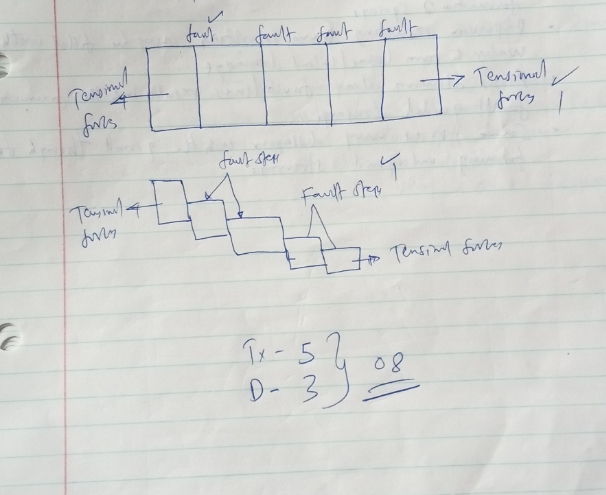 fault fault fault fault
Tensional forces
Tensional forces 1
fault steps
1
Fault steps
Tensional forces
Tensional forces
Tx - 5
D - 3
08